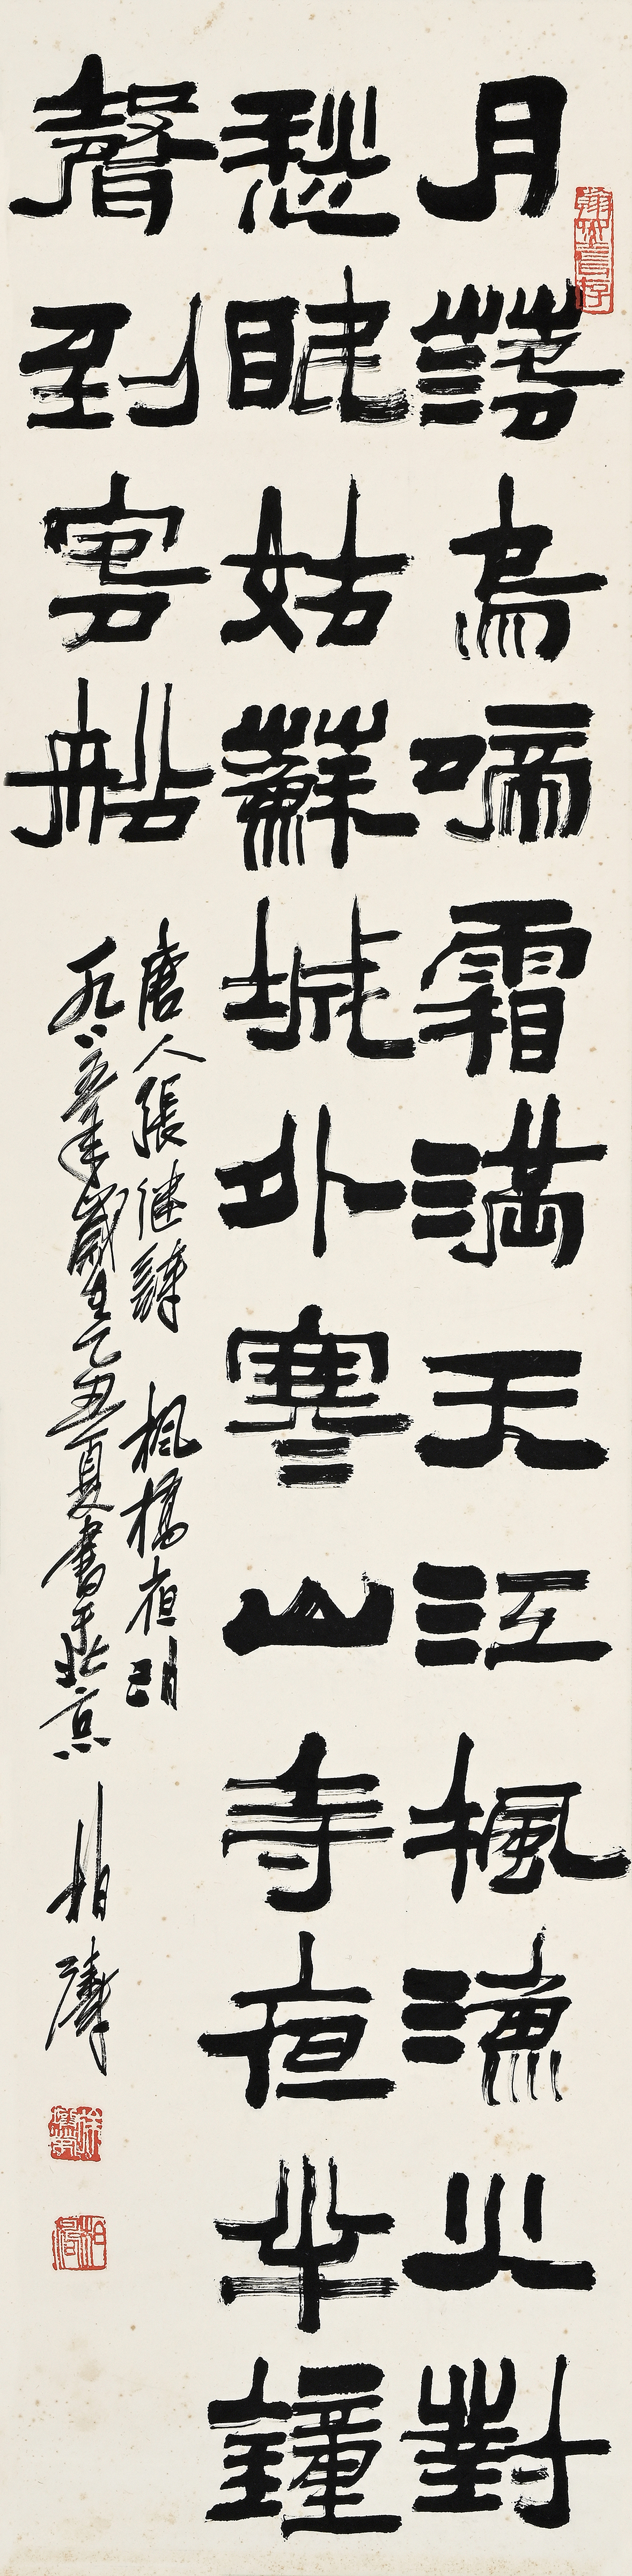 月落烏啼霜滿天江楓漁火對
愁眠姑蘇城外寒山寺夜半鐘
聲到客船
唐人張継詩 楓橋夜泊
一九八五年歲在乙丑夏書於北京 柏濤